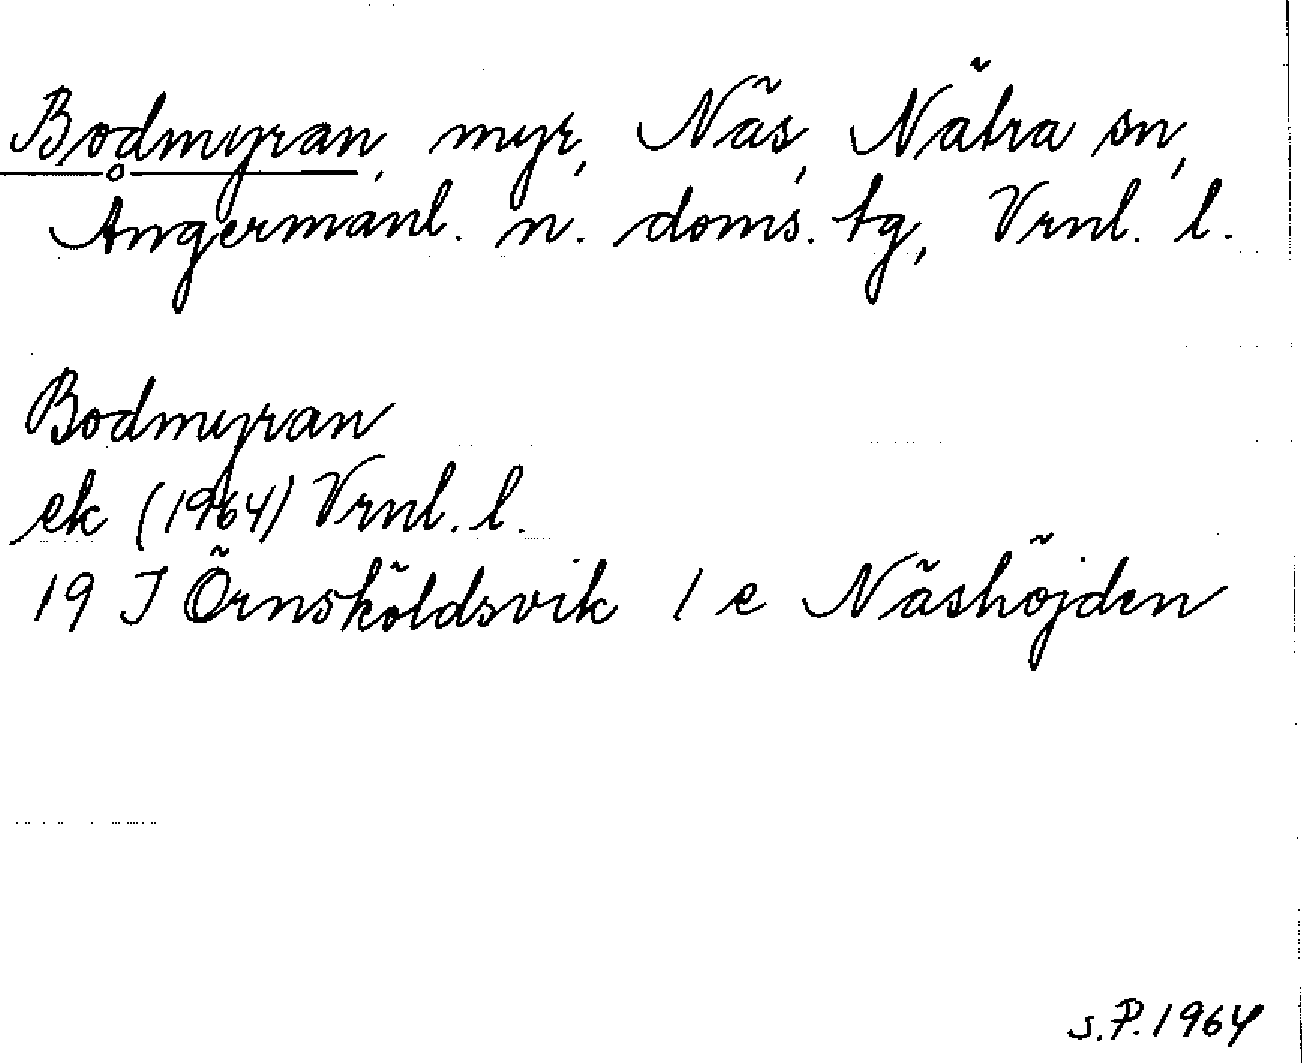 Bodmyran, myr, Näs, Nätra sn,
Ångermanl. n. doms. tg, Vrnl. l.
Bodmyran
ek (1964) Vrnl. l.
19 J Örnsköldsvik 1 e Näshöjden
s.P. 1964